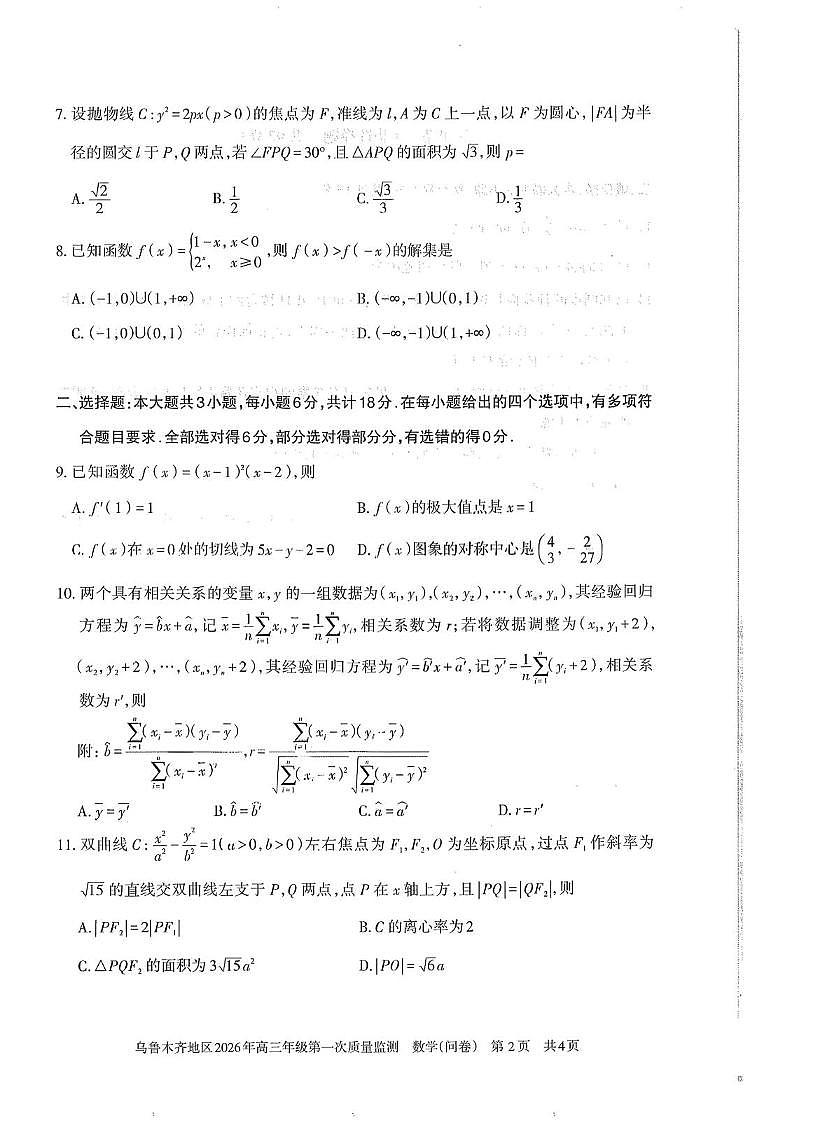 7. 设抛物线 C:y²=2px(p>0)的焦点为 F,准线为 l,A 为 C 上一点,以 F 为圆心,|FA|为半
径的圆交 l 于 P,Q 两点,若 ∠FPQ=30°,且 △APQ 的面积为 √3,则 p=
A. √2/2 B. 1/2 C. √3/3 D. 1/3
8. 已知函数 f(x)={1-x, x<0; 2ˣ, x≥0 ,则 f(x)>f(-x)的解集是
A. (-1,0)∪(1,+∞) B. (-∞,-1)∪(0,1)
C. (-1,0)∪(0,1) D. (-∞,-1)∪(1,+∞)
二、选择题:本大题共3小题,每小题6分,共计18分.在每小题给出的四个选项中,有多项符
合题目要求.全部选对得6分,部分选对得部分分,有选错的得0分.
9. 已知函数 f(x)=(x-1)²(x-2),则
A. f′(1)=1 B. f(x)的极大值点是 x=1
C. f(x)在 x=0 处的切线为 5x-y-2=0 D. f(x)图象的对称中心是(4/3, -2/27)
10. 两个具有相关关系的变量 x,y 的一组数据为(x₁,y₁),(x₂,y₂),⋯,(xₙ,yₙ),其经验回归
方程为 ŷ=b̂x+â,记 x̄=1/n ∑ᵢ₌₁ⁿ xᵢ, ȳ=1/n ∑ᵢ₌₁ⁿ yᵢ,相关系数为 r;若将数据调整为(x₁,y₁+2),
(x₂,y₂+2),⋯,(xₙ,yₙ+2),其经验回归方程为 ŷ′=b̂′x+â′,记 ȳ′=1/n ∑ᵢ₌₁ⁿ (yᵢ+2),相关系
数为 r′,则
附: b̂=∑ᵢ₌₁ⁿ(xᵢ-x̄)(yᵢ-ȳ) / ∑ᵢ₌₁ⁿ(xᵢ-x̄)², r=∑ᵢ₌₁ⁿ(xᵢ-x̄)(yᵢ-ȳ) / √∑ᵢ₌₁ⁿ(xᵢ-x̄)² √∑ᵢ₌₁ⁿ(yᵢ-ȳ)²
A. ȳ=ȳ′ B. b̂=b̂′ C. â=â′ D. r=r′
11. 双曲线 C: x²/a²-y²/b²=1(a>0,b>0)左右焦点为 F₁,F₂,O 为坐标原点,过点 F₁ 作斜率为
√15 的直线交双曲线左支于 P,Q 两点,点 P 在 x 轴上方,且|PQ|=|QF₂|,则
A. |PF₂|=2|PF₁| B. C 的离心率为2
C. △PQF₂ 的面积为 3√15a² D. |PO|=√6a
乌鲁木齐地区2026年高三年级第一次质量监测 数学(问卷) 第2页 共4页